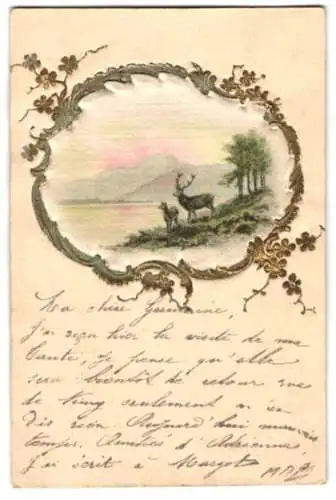 Ma chère Germaine,
J'ai reçu hier la visite de ma
tante, je pense qu'elle
sera bientôt de retour rue
de seulement n'en
dis rien. Aujourd'hui mauvais
temps. Amitiés d'Adrienne,
J'ai écrit à Margot